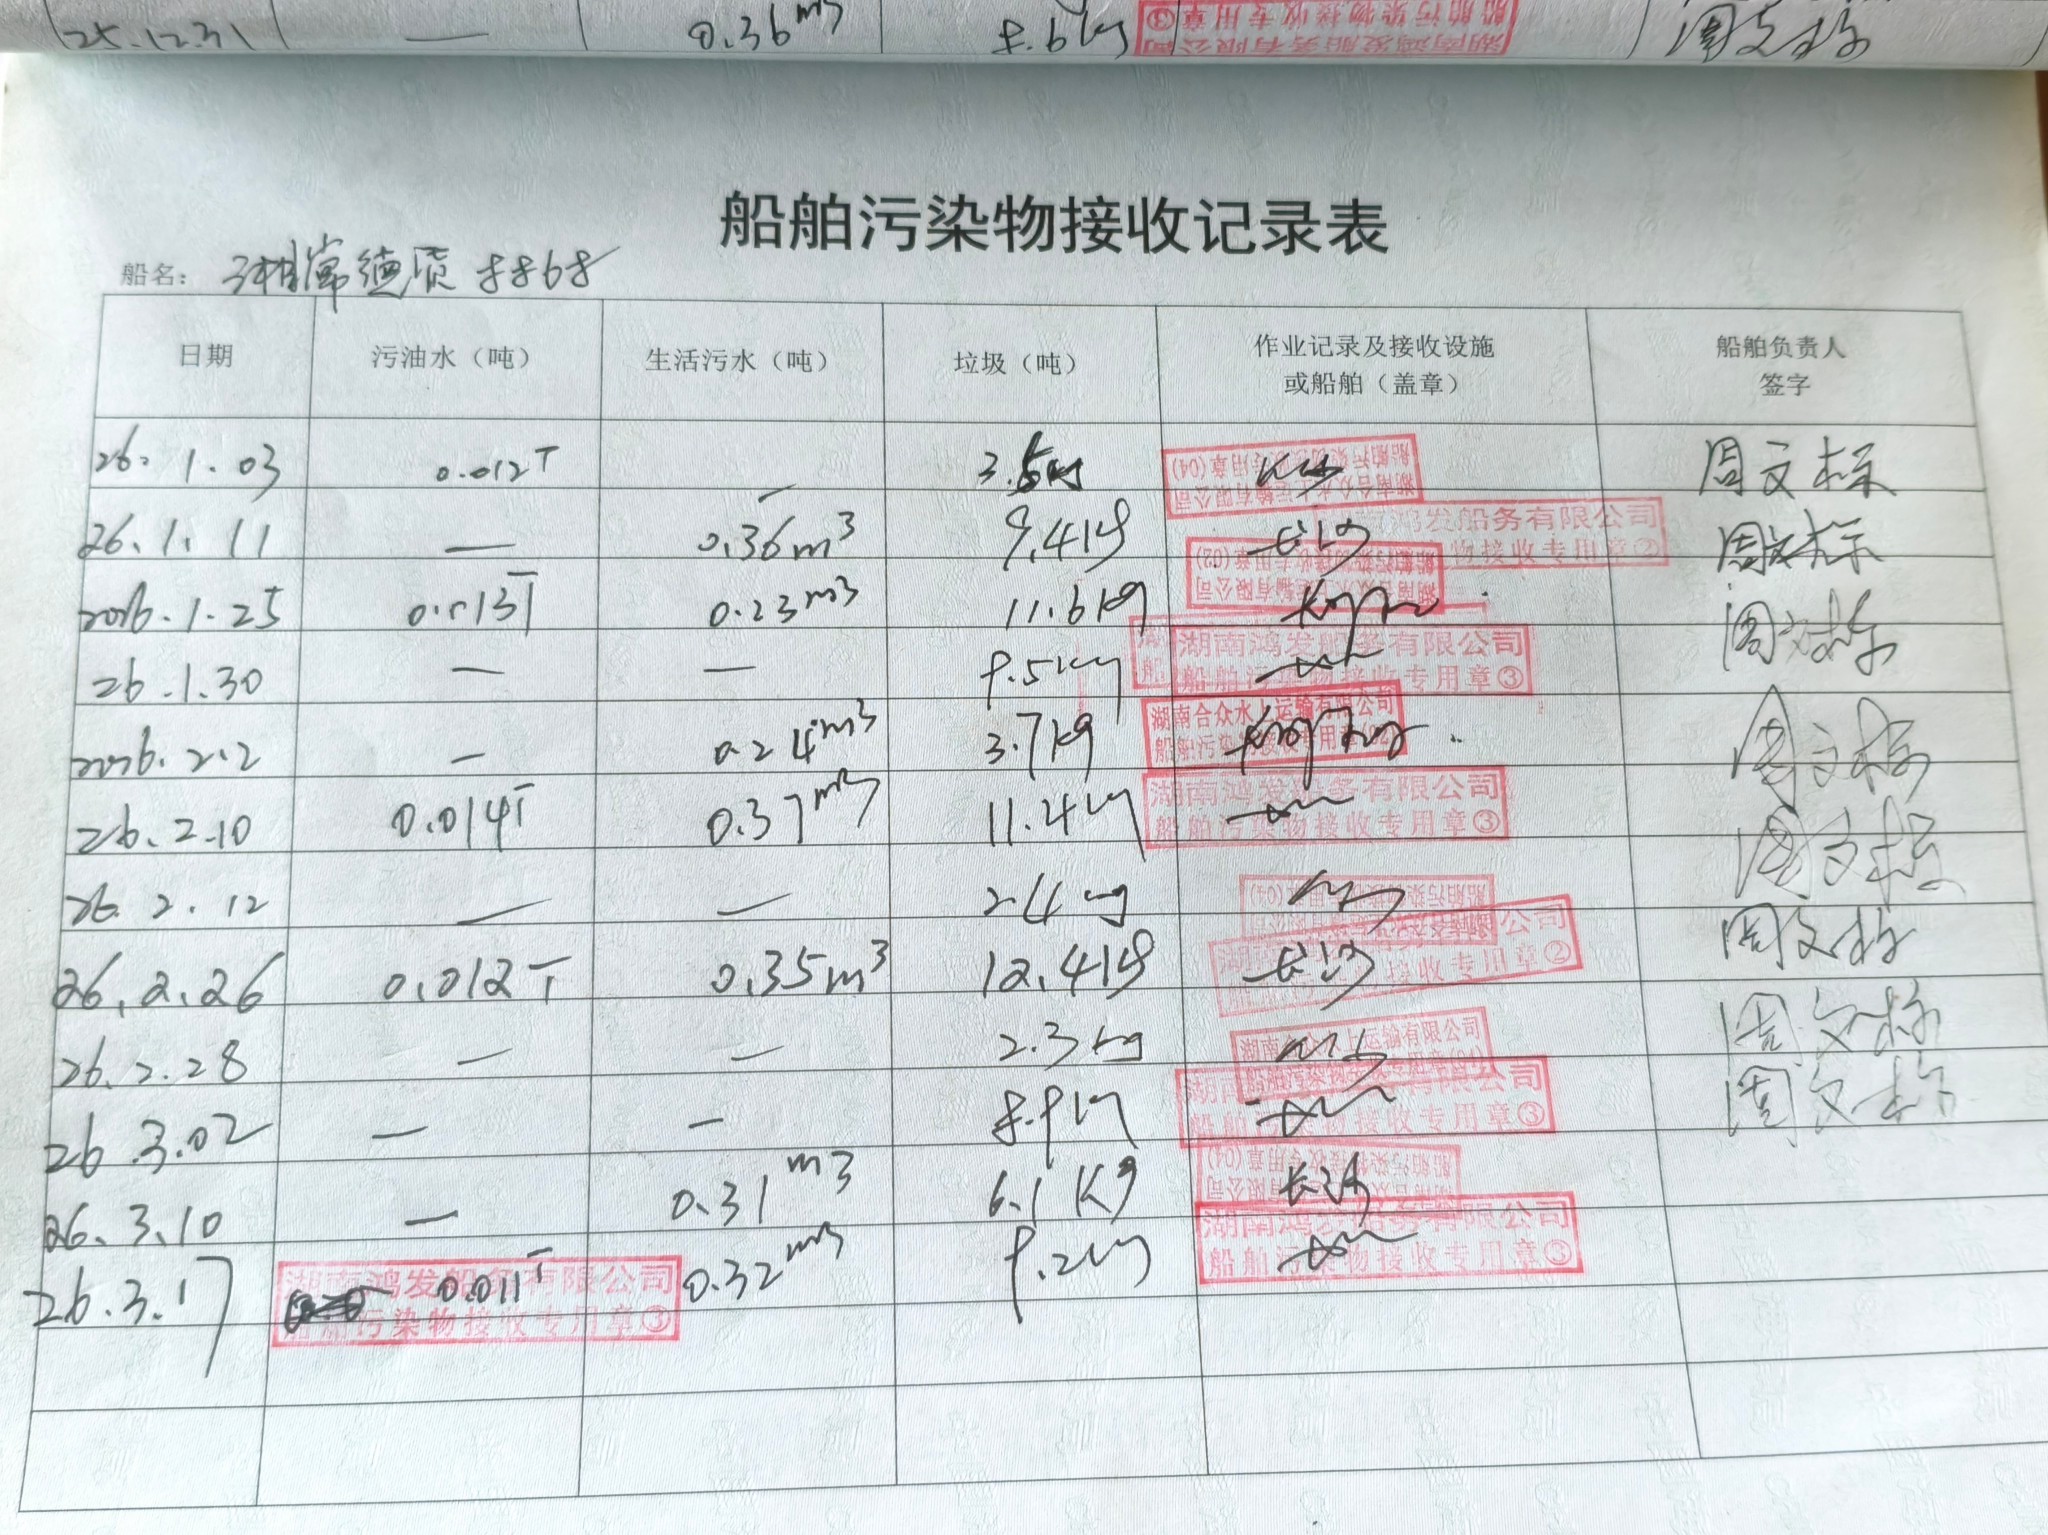 25.12.31 — 0.36m3 8.6kg 湖南鸿发船务有限公司 船舶污染物接收专用章③ 周文标
船舶污染物接收记录表
船名： 湘常德货8868
日期 污油水（吨） 生活污水（吨） 垃圾（吨） 作业记录及接收设施或船舶（盖章） 船舶负责人签字
26.1.03 0.012T — 3.5kg 长沙 周文标
26.1.11 — 0.36m3 9.4kg 长沙 周文标
2026.1.25 0.013T 0.23m3 11.6kg 周文标
26.1.30 — — 9.5kg
2026.2.2 — 0.24m3 3.7kg 周文标
26.2.10 0.014T 0.37m3 11.4kg 周文标
26.2.12 — — 2.4kg 长沙 周文标
26.2.26 0.012T 0.35m3 12.4kg 长沙
26.2.28 — — 2.3kg 长沙 周文标
26.3.02 — — 8.9kg 周文标
26.3.10 — 0.31m3 6.1Kg 长沙
26.3.17 0.011T 0.32m3 9.2kg
湖南合众水上运输有限公司
船舶污染物接收专用章(04)
湖南鸿发船务有限公司
船舶污染物接收专用章②
湖南合众水上运输有限公司
船舶污染物接收专用章(02)
湖南鸿发船务有限公司
船舶污染物接收专用章③
湖南合众水上运输有限公司
湖南鸿发船务有限公司
船舶污染物接收专用章③
湖南合众水上运输有限公司
船舶污染物接收专用章(04)
湖南鸿发船务有限公司
船舶污染物接收专用章②
湖南合众水上运输有限公司
船舶污染物接收专用章(04)
湖南鸿发船务有限公司
船舶污染物接收专用章③
船舶污染物接收专用章(04)
湖南鸿发船务有限公司
船舶污染物接收专用章③
湖南鸿发船务有限公司
船舶污染物接收专用章③